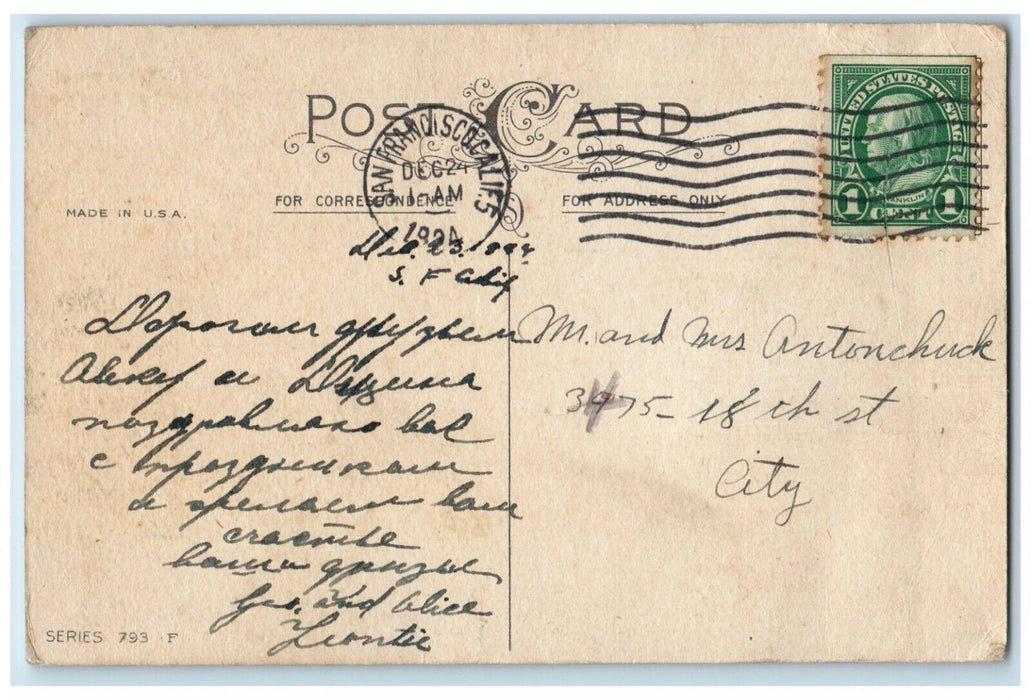 POST CARD
SAN FRANCISCO, CALIF. 5
DEC 24
1-AM
1924
UNITED STATES POSTAGE
FRANKLIN
1 CENT 1
FOR CORRESPONDENCE
FOR ADDRESS ONLY
MADE IN U.S.A.
Dec. 23. 1924
S. F Calif
Дорогим друзьям
и
поздравляю вас
с праздником
и желаем вам
счастье
ваши друзья
Geo. and Alice
Leontie
Mr. and Mrs Antonchuck
3475- 18 th st
City
SERIES 793 F